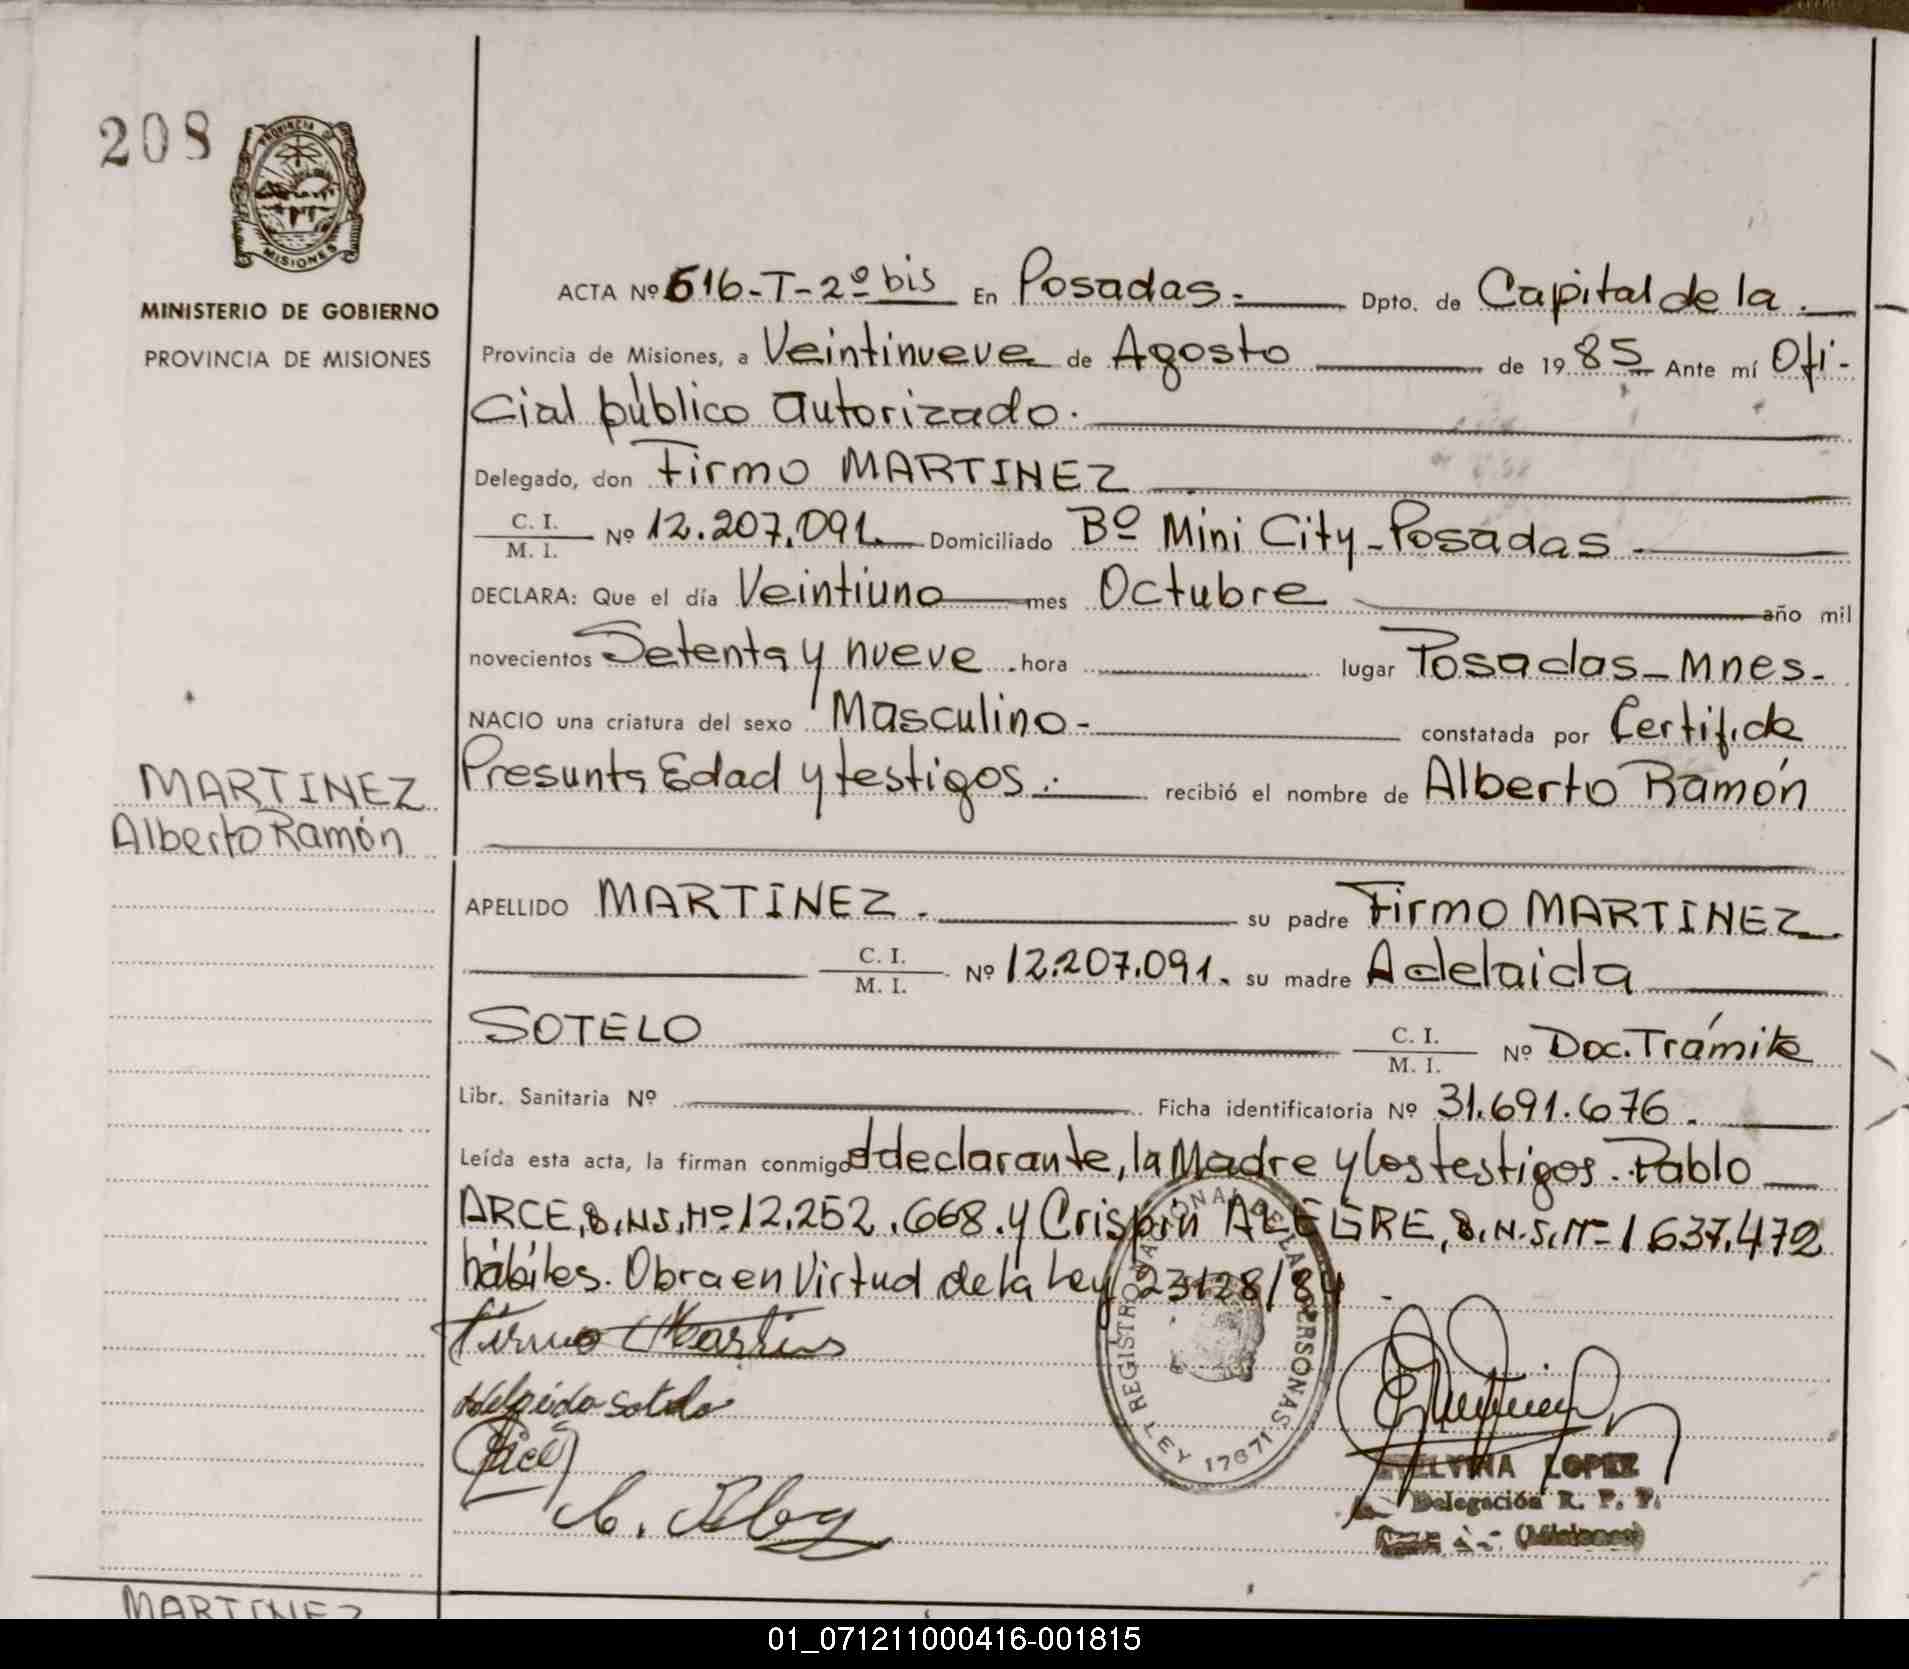 208
PROVINCIA DE
MISIONES
MINISTERIO DE GOBIERNO
PROVINCIA DE MISIONES
MARTINEZ
Alberto Ramón
ACTA Nº 616-T-2º bis En Posadas.- Dpto. de Capital de la.
Provincia de Misiones, a Veintinueve de Agosto de 1985 Ante mí Ofi-
cial público autorizado.
Delegado, don Firmo MARTINEZ
C. I. / M. I. Nº 12.207.091. Domiciliado Bº Mini City-Posadas.
DECLARA: Que el día Veintiuno mes Octubre año mil
novecientos Setenta y nueve. hora lugar Posadas-Mnes-
NACIO una criatura del sexo Masculino- constatada por Certif.de
Presunta Edad y testigos. recibió el nombre de Alberto Ramón
APELLIDO MARTINEZ. su padre Firmo MARTINEZ
C. I. / M. I. Nº 12.207.091. su madre Adelaida
SOTELO C. I. / M. I. Nº Doc. Trámite
Libr. Sanitaria Nº Ficha identificatoria Nº 31.691.676.
Leída esta acta, la firman conmigo el declarante, la Madre y los testigos. Pablo
ARCE, D.N.I. Nº 12.252.668. y Crispin ALEGRE, D.N.I. Nº 1.637.472
hábiles. Obra en Virtud de la Ley 23128/84.
Firmo Martines
Adelaida Sotelo
REGISTRO NACIONAL DE LAS PERSONAS
LEY 17671
LOPEZ
Delegación R. P. P.
(Misiones)
MARTINEZ
01_071211000416-001815